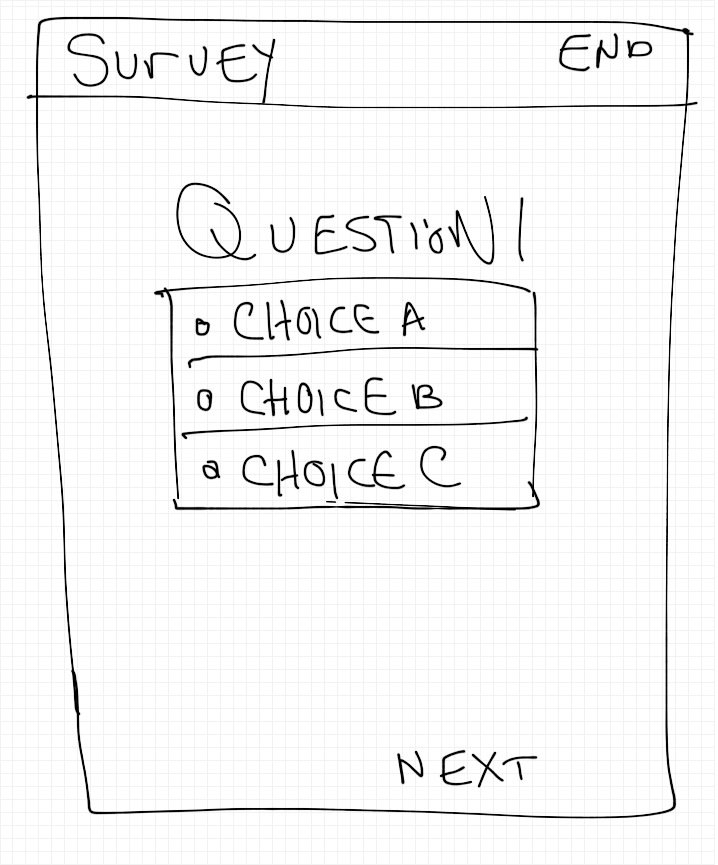 Survey END
QUESTION 1
CHOICE A
CHOICE B
CHOICE C
NEXT